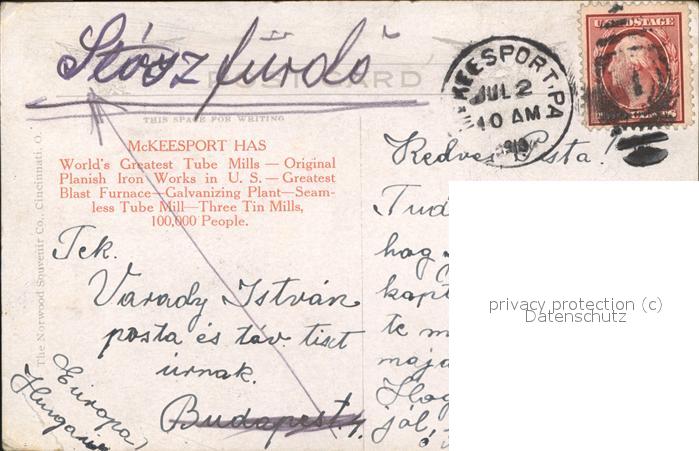 Stósz fürdő
POST CARD
THIS SPACE FOR WRITING
McKEESPORT, PA.
JUL 2
10 AM
1913
UNITED STATES POSTAGE
McKEESPORT HAS
World's Greatest Tube Mills — Original
Planish Iron Works in U. S. — Greatest
Blast Furnace—Galvanizing Plant—Seam-
less Tube Mill—Three Tin Mills,
100,000 People.
The Norwood Souvenir Co., Cincinnati, O.
Tek.
Varady István
posta és táv. tiszt
úrnak.
Budapest.
Európa
Hungaria
Kedves Pista!
Tud
hog
kapt
te m
maja
Hog
jól,
privacy protection (c)
Datenschutz